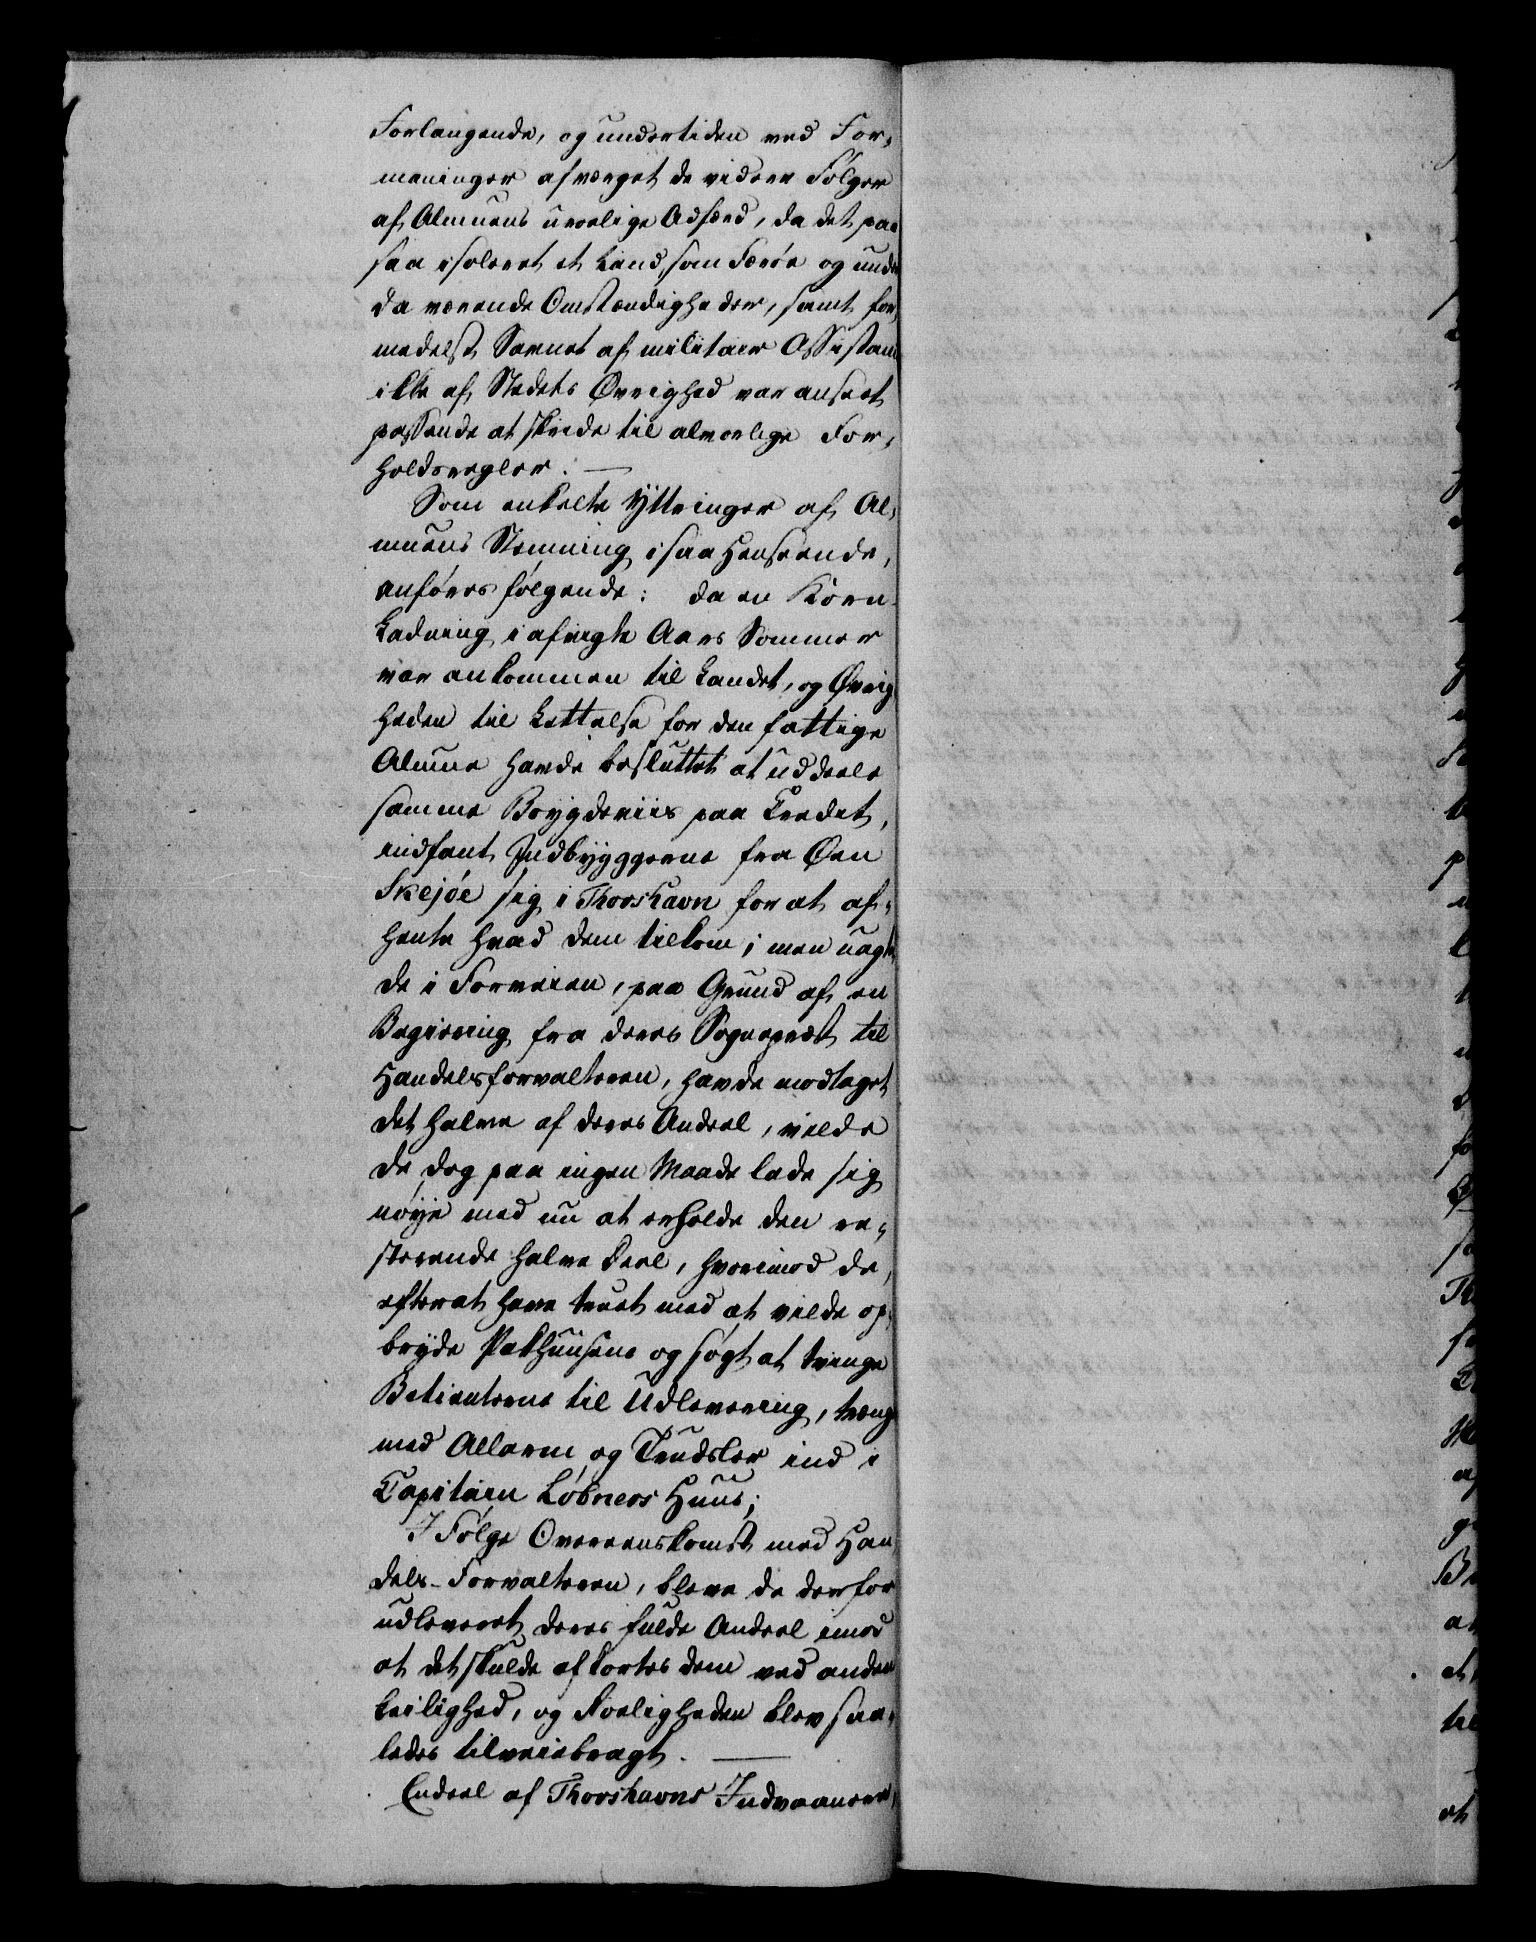 Forlangende, og undertiden ved For-
maninger afværget de videre Følger
af Almuens urolige Adfærd, da det paa
saa isoleret et Land, som Færøe og under
da værende Omstændigheder, samt for-
medelst Savnet af militair Assistance
ikke af Stedets Øvrighed var anseet
passende at skride til alvorlige For-
holdsregler. —
Som enkelte Yttringer af Al-
muens Stemning i saa Henseende,
anføres følgende: da en Korn-
Ladning i afvigte Aars Sommer
var ankommen til Landet, og Øvrig-
heden til Lettelse for den fattige
Almue havde besluttet at uddeele
samme Boygdeviis paa Credit,
indfant Indbyggerne fra Øen
Skejøe sig i Thorshavn for at af-
hente hvad dem tilkom; men uagtet
de i Forveien, paa Grund af en
Begiering fra deres Sognepræst til
Handelsforvalteren, havde modtaget
det halve af deres Andeel, vilde
de dog paa ingen Maade lade sig
nøye med nu at erholde den re-
sterende halve Deel, hvorimod de,
efterat have truet med at vilde op-
bryde Pakhuusene og søgt at tvinge
Betienterne til Udlevering, trængte
med Allarm og Trudsler ind i
Capitain Løbners Huus;
I Følge Overeenskomst med Han-
dels-Forvalteren, bleve de derfor
udleveret deres fulde Andeel imod
at det skulde afkortes dem ved anden
Leilighed, og Roeligheden blev saa-
ledes tilveiebragt. —
Endeel af Thorshavns Indvaanere,